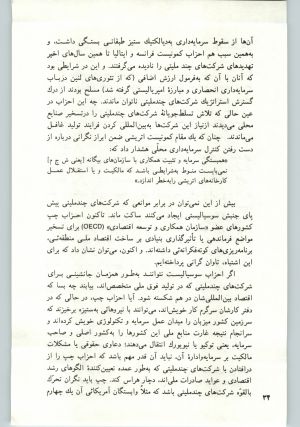 آن‌ها از سقوط سرمایه‌داری به‌دیالکتیك ستیز طبقاتی بستگی داشت، و
به‌همین سبب هم احزاب کمونیست فرانسه و ایتالیا تا همین سال‌های اخیر
تهدیدهای شرکت‌های چند ملیتی را نادیده می‌گرفتند. و این در شرایطی بود
که آنان با آن که به‌فرمول ارزش اضافی (که از تئوری‌های لنین درباب
سرمایه‌داری انحصاری و مبارزهٔ امپریالیستی گرفته شد) مسلح بودند از درك
گسترش استراتژیك شرکت‌های چندملیتی ناتوان ماندند. چه این احزاب در
عین حالی که تلاش تسلط‌جویانهٔ شرکت‌های چندملیتی را درتسخیر صنایع
محلی می‌دیدند ازنیاز این شرکت‌ها به‌بین‌المللی کردن فرایند تولید غافل
می‌ماندند. چنان که یك مقام کمونیست اتریشی ضمن ابراز نگرانی درباره از
دست رفتن کنترل سرمایه‌داری محلی هشدار داد که:
«همبستگی سرمایه و تثبیت همکاری با سازمان‌های بیگانه [یعنی ش ج م]
نمی‌بایست منوط به‌شرایطی باشد که مالکیت و یا استقلال عمل
کارخانه‌های اتریشی رابه‌خطر اندازد.»
بیش از این نمی‌توان در برابر موانعی که شرکت‌های چندملیتی در
پای جنبش سوسیالیستی ایجاد می‌کنند ساکت ماند. تاکنون احزاب چپ
کشورهای عضو «سازمان همکاری و توسعه اقتصادی» (OECD) برای تسخیر
مواضع فرماندهی یا تأثیرگذاری بنیادی بر ساخت اقتصاد ملی منطقه‌ئی،
برنامه‌ریزی‌های کوته‌فکرانه‌ئی داشته‌اند. و اکنون، می‌توان نشان داد که برای
این اشتباه، تاوان گرانی پرداخته‌ایم.
اگر احزاب سوسیالیست نتوانند به‌طور همزمان جانشینی برای
شرکت‌های چندملیتی که در تولید فوق ملی متخصص‌اند، بیابند چه بسا که
اقتصاد بین‌المللی‌شان در هم شکسته شود. آیا احزاب چپ، در حالی که در
دفتر کارشان سرگرم کار خویش‌اند، می‌توانند با نیروهائی به‌ستیزه برخیزند که
سرزمین کشور میزبان را میدان عمل سرمایه و تکنولوژی خویش کرده‌اند و
سرانجام نتیجه غارت منابع ملی این کشورها را به‌کشور اصلی و صاحب
سرمایه، یعنی توکیو یا نیویورك انتقال می‌دهند؛ دعاوی حقوقی یا مشکلات
مالکیت بر سرمایه‌وادارهٔ آن، نباید آن قدر مهم باشد که احزاب چپ را از
درافتادن با شرکت‌های چندملیتی که به‌طور عمده تعیین‌کنندهٔ الگوهای رشد
اقتصادی و عواید صادرات ملی‌اند، دچار هراس کند. چپ باید نگران تحرك
بالقوهٔ شرکت‌های چندملیتی باشد که مثلاً وابستگان آمریکائی آن یك چهارم
۳۴